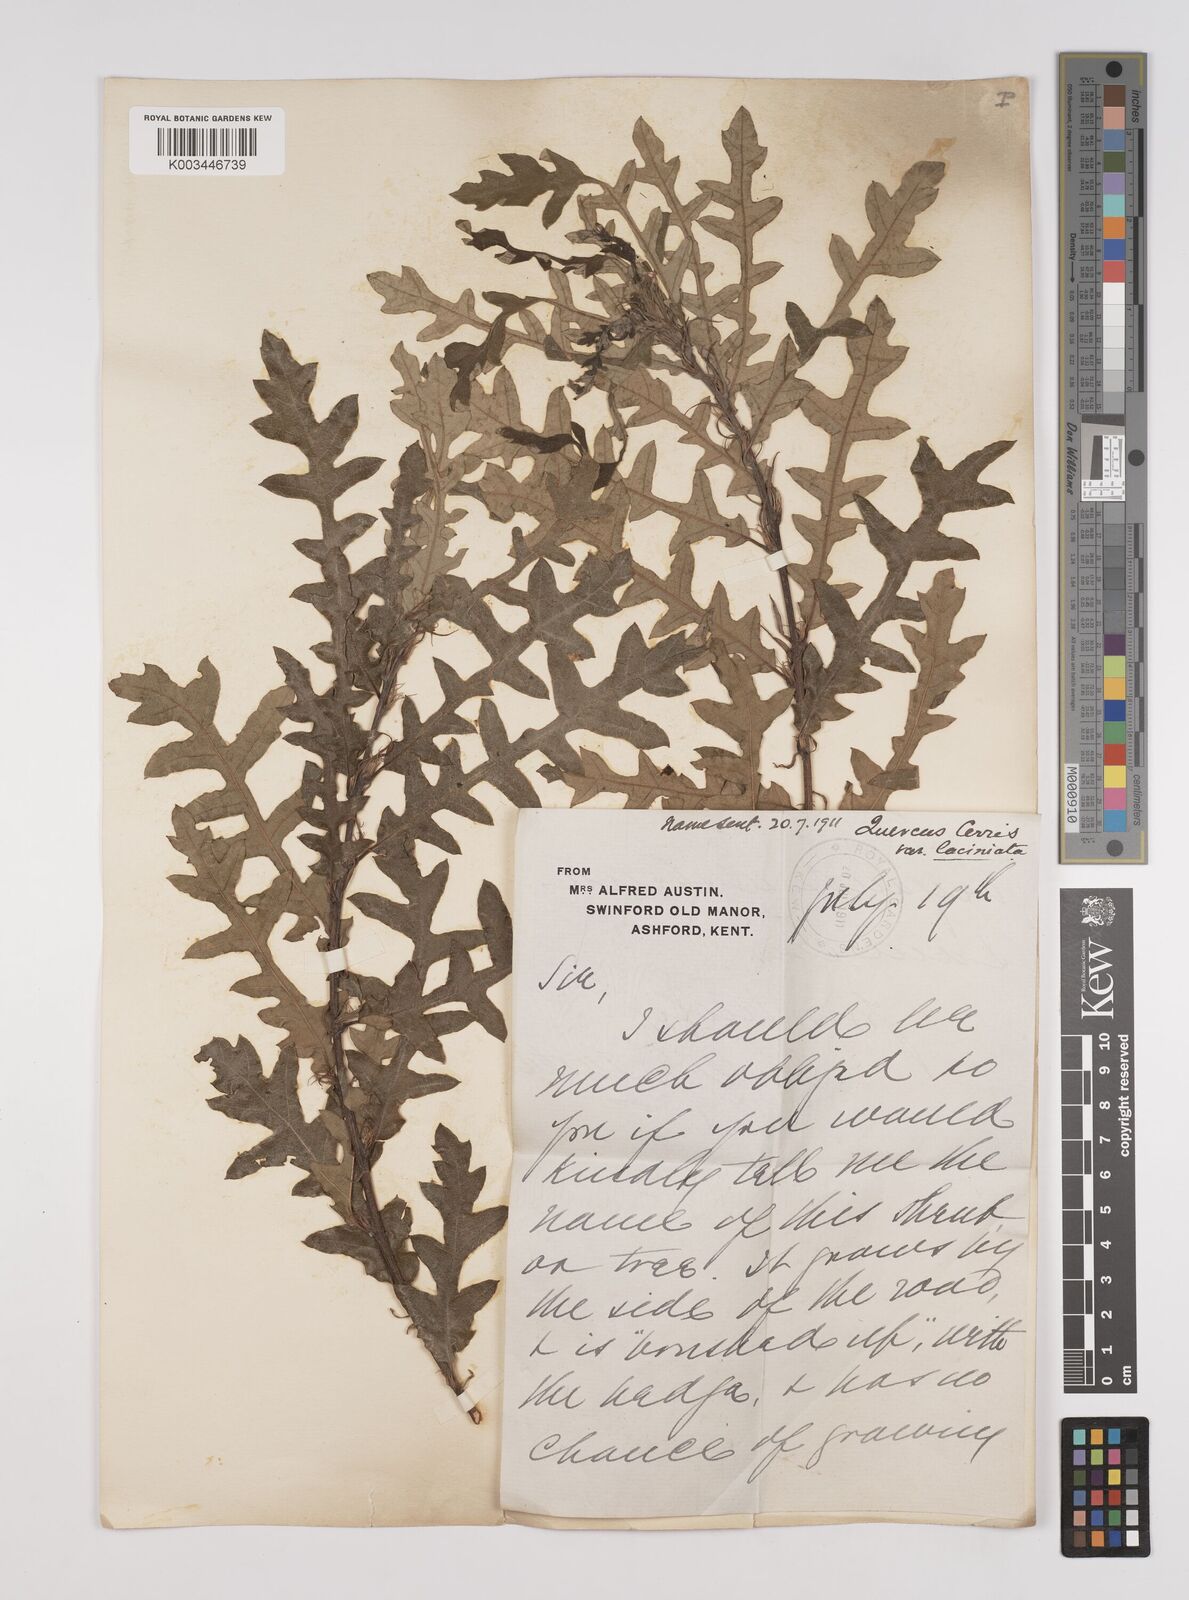 ROYAL BOTANIC GARDENS KEW
K003446739
Name sent. 20.7.1911 Quercus Cerris
var. laciniata
FROM
MRS ALFRED AUSTIN,
SWINFORD OLD MANOR,
ASHFORD, KENT.
July 19th
Sir,
I should be
much obliged to
you if you would
kindly tell me the
name of this shrub,
or tree. It grows by
the side of the road,
& is "brushed up", with
the hedge, & has no
chance of growing
inches
centimeters
Density
Don Williams
M000910
Kew
Royal Botanic Gardens
copyright reserved
0 1 2 3 4 5 6 7 8 9 10
cm